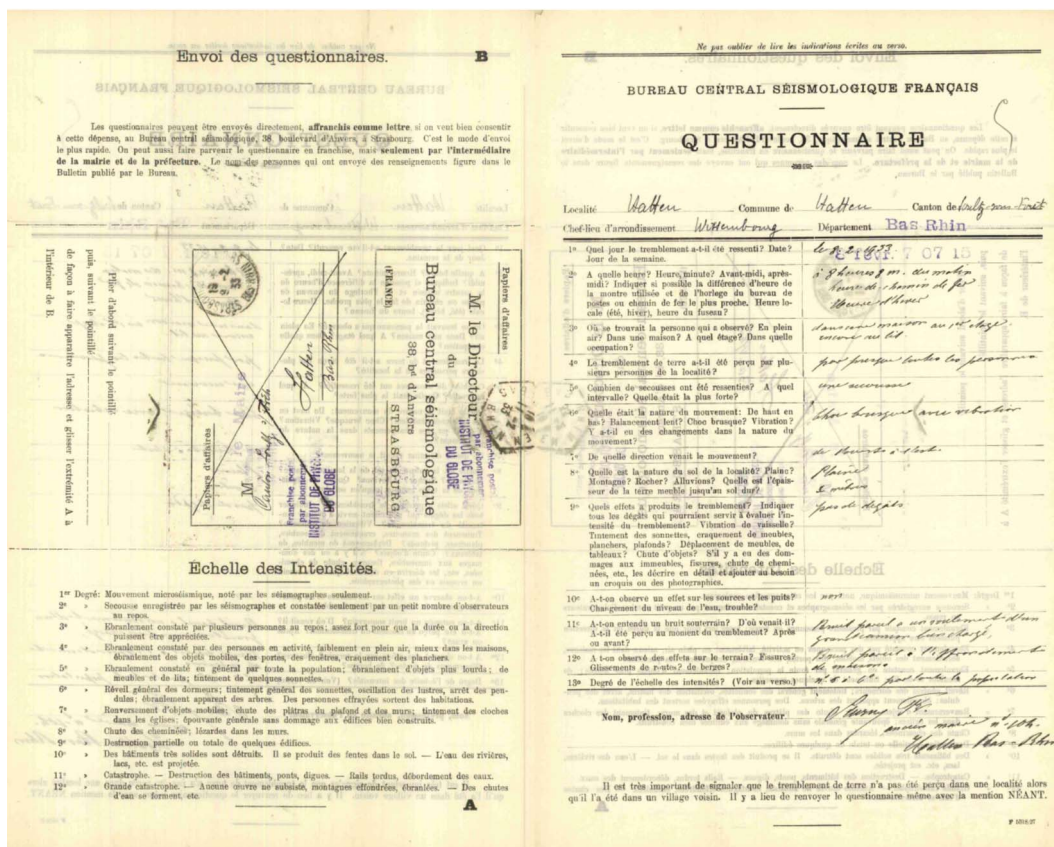 Envoi des questionnaires.
B
Les questionnaires peuvent être envoyés directement, affranchis comme lettre, si on veut bien consentir
à cette dépense, au Bureau central séismologique, 38, boulevard d'Anvers, à Strasbourg. C'est le mode d'envoi
le plus rapide. On peut aussi faire parvenir le questionnaire en franchise, mais seulement par l'intermédiaire
de la mairie et de la préfecture. Le nom des personnes qui ont envoyé des renseignements figure dans le
Bulletin publié par le Bureau.
Plier d'abord suivant le pointillé
puis, suivant le pointillé
de façon à faire apparaître l'adresse et glisser l'extrémité A à
l'intérieur de B.
Papiers d'affaires
M. le Maire
Hatten
Bas Rhin
Franchise postale
par abonnement
INSTITUT DE PHYSIQUE
DU GLOBE
Papiers d'affaires
M. le Directeur
du
Bureau central séismologique
38, bd d'Anvers
(FRANCE)
STRASBOURG
Franchise postale
par abonnement
INSTITUT DE PHYSIQUE
DU GLOBE
Échelle des Intensités.
1er Degré: Mouvement microséismique, noté par les séismographes seulement.
2e » Secousse enregistrée par les séismographes et constatée seulement par un petit nombre d'observateurs
au repos.
3e » Ebranlement constaté par plusieurs personnes au repos; assez fort pour que la durée ou la direction
puissent être appréciées.
4e » Ebranlement constaté par des personnes en activité, faiblement en plein air, mieux dans les maisons,
ébranlement des objets mobiles, des portes, des fenêtres, craquement des planchers.
5e » Ebranlement constaté en général par toute la population; ébranlement d'objets plus lourds; de
meubles et de lits; tintement de quelques sonnettes.
6e » Réveil général des dormeurs; tintement général des sonnettes, oscillation des lustres, arrêt des pen-
dules; ébranlement apparent des arbres. Des personnes effrayées sortent des habitations.
7e » Renversement d'objets mobiles; chute des plâtras du plafond et des murs; tintement des cloches
dans les églises; épouvante générale sans dommage aux édifices bien construits.
8e » Chute des cheminées; lézardes dans les murs.
9e » Destruction partielle ou totale de quelques édifices.
10e » Des bâtiments très solides sont détruits. Il se produit des fentes dans le sol. — L'eau des rivières,
lacs, etc. est projetée.
11e » Catastrophe. — Destruction des bâtiments, ponts, digues. — Rails tordus, débordement des eaux.
12e » Grande catastrophe. — Aucune œuvre ne subsiste, montagnes effondrées, ébranlées. — Des chutes
d'eau se forment, etc.
A
Ne pas oublier de lire les indications écrites au verso.
BUREAU CENTRAL SÉISMOLOGIQUE FRANÇAIS
5
QUESTIONNAIRE
Localité Hatten Commune de Hatten Canton de Soultz-sous-Forêt
Chef-lieu d'arrondissement Wissembourg Département Bas Rhin
1° Quel jour le tremblement a-t-il été ressenti? Date?
Jour de la semaine.
le 8-2-1933
2° A quelle heure? Heure, minute? Avant-midi, après-
midi? Indiquer si possible la différence d'heure de
la montre utilisée et de l'horloge du bureau de
postes ou chemin de fer le plus proche. Heure lo-
cale (été, hiver), heure du fuseau?
à 8 heures 8 m. du matin
heure de chemin de fer
Heure d'hiver
3° Où se trouvait la personne qui a observé? En plein
air? Dans une maison? A quel étage? Dans quelle
occupation?
dans une maison au 1er étage
encore au lit
4° Le tremblement de terre a-t-il été perçu par plu-
sieurs personnes de la localité?
par presque toutes les personnes
5° Combien de secousses ont été ressenties? A quel
intervalle? Quelle était la plus forte?
une secousse
6° Quelle était la nature du mouvement: De haut en
bas? Balancement lent? Choc brusque? Vibration?
Y a-t-il eu des changements dans la nature du
mouvement?
Choc brusque avec vibration
7° De quelle direction venait le mouvement?
de l'ouest à l'est
8° Quelle est la nature du sol de la localité? Plaine?
Montagne? Rocher? Alluvions? Quelle est l'épais-
seur de la terre meuble jusqu'au sol dur?
Plaine
mètres
9° Quels effets a produits le tremblement? — Indiquer
tous les dégâts qui pourraient servir à évaluer l'in-
tensité du tremblement? Vibration de vaisselle?
Tintement des sonnettes, craquement de meubles,
planchers, plafonds? Déplacement de meubles, de
tableaux? Chute d'objets? S'il y a eu des dom-
mages aux immeubles, fissures, chute de chemi-
nées, etc., les décrire en détail et ajouter au besoin
un croquis ou des photographies.
pas de dégâts
10° A-t-on observé un effet sur les sources et les puits?
Changement du niveau de l'eau, trouble?
non
11° A-t-on entendu un bruit souterrain? D'où venait-il?
A-t-il été perçu au moment du tremblement? Après
ou avant?
Bruit pareil à un roulement d'un
grand camion bien chargé,
12° A-t-on observé des effets sur le terrain? Fissures?
Glissements de routes? de berges?
Bruit pareil à l'effondrement
de maisons
13° Degré de l'échelle des intensités? (Voir au verso.)
n° 5 à 6° par toute la population
Nom, profession, adresse de l'observateur
ancien maire n° 104
Hatten Bas-Rhin
Il est très important de signaler que le tremblement de terre n'a pas été perçu dans une localité alors
qu'il l'a été dans un village voisin. Il y a lieu de renvoyer le questionnaire même avec la mention NÉANT.